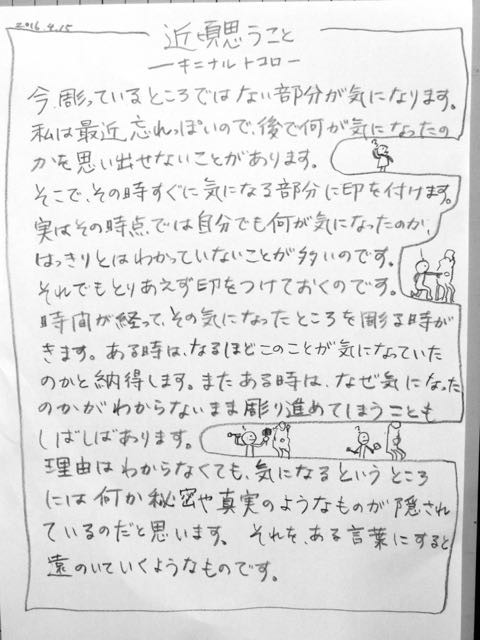 2016.4.15
近頃思うこと
ーキニナルトコロー
今、彫っているところではない部分が気になります。
私は最近忘れっぽいので、後で何が気になったの
かを思い出せないことがあります。
そこで、その時すぐに気になる部分に印を付けます。
実はその時点では自分でも何が気になったのか、
はっきりとはわかっていないことが多いのです。
それでもとりあえず印をつけておくのです。
時間が経って、その気になったところを彫る時が
きます。ある時は、なるほどこのことが気になっていた
のかと納得します。またある時は、なぜ気になった
のかがわからないまま彫り進めてしまうことも
しばしばあります。
理由はわからなくても、気になるというところ
には何か秘密や真実のようなものが隠され
ているのだと思います。それを、ある言葉にすると
遠のいていくようなものです。